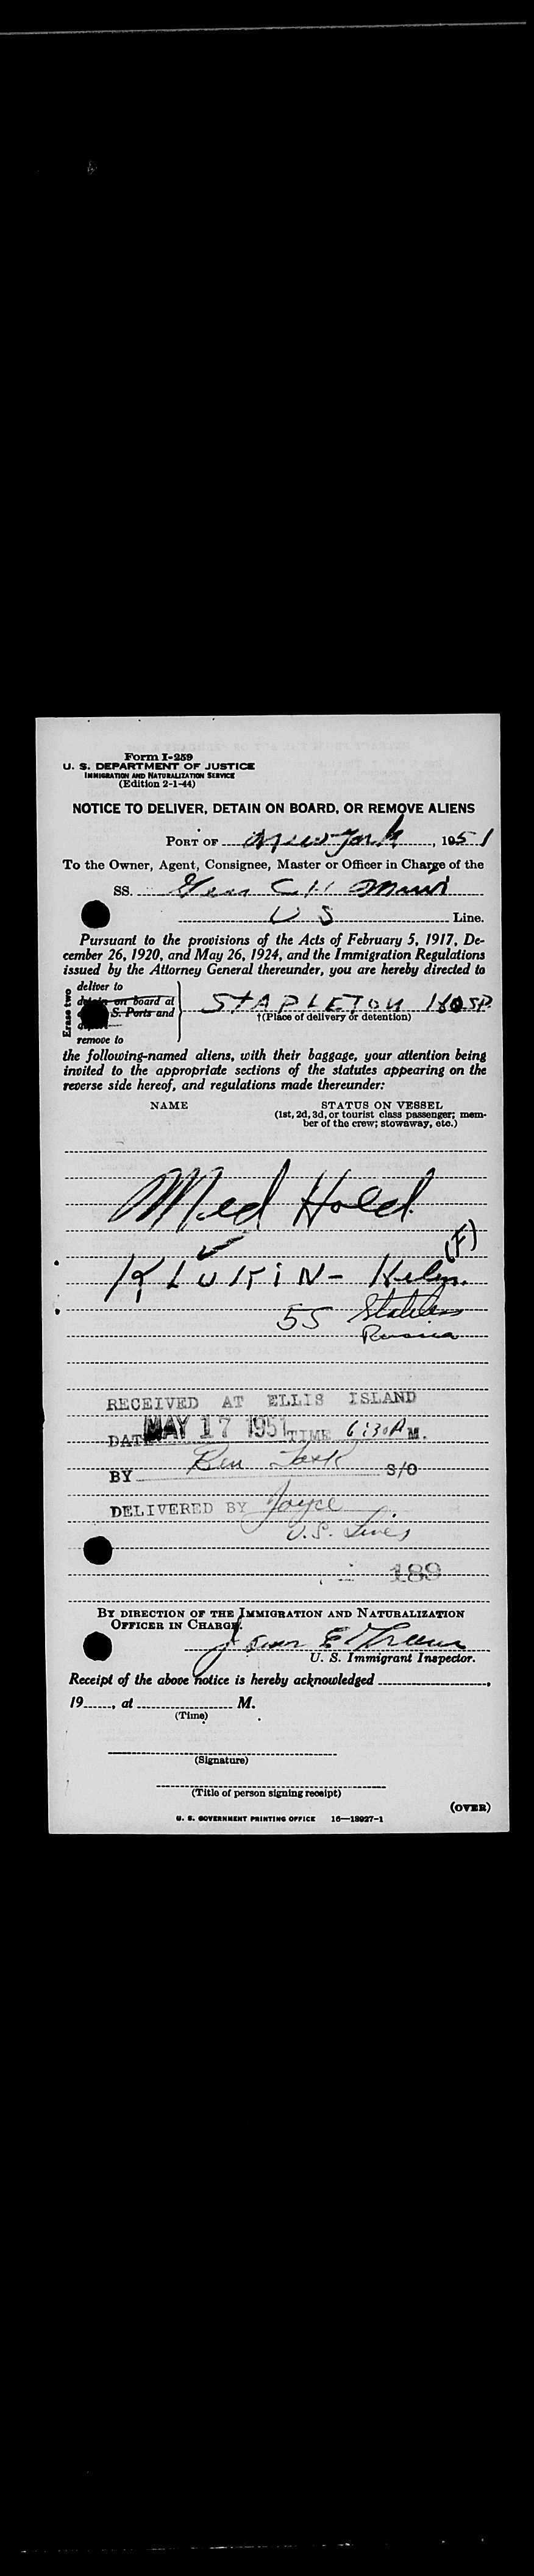 Form I-259
U. S. DEPARTMENT OF JUSTICE
IMMIGRATION AND NATURALIZATION SERVICE
(Edition 2-1-44)
NOTICE TO DELIVER, DETAIN ON BOARD, OR REMOVE ALIENS
PORT OF New York, 1951
To the Owner, Agent, Consignee, Master or Officer in Charge of the
SS. Gen C H Muir
U S Line.
Pursuant to the provisions of the Acts of February 5, 1917, De-
cember 26, 1920, and May 26, 1924, and the Immigration Regulations
issued by the Attorney General thereunder, you are hereby directed to
Erase two
deliver to
detain on board at
S. Ports and
remove to
STAPLETON HOSP
†(Place of delivery or detention)
the following-named aliens, with their baggage, your attention being
invited to the appropriate sections of the statutes appearing on the
reverse side hereof, and regulations made thereunder:
NAME
STATUS ON VESSEL
(1st, 2d, 3d, or tourist class passenger; mem-
ber of the crew; stowaway, etc.)
Med Hold
(F)
KLUKIN-
55 Stateless
Russia
RECEIVED AT ELLIS ISLAND
DATE MAY 17 1951 TIME 6:30 A M.
BY Ben S/O
DELIVERED BY Joyce
U.S. Lines
189
BY DIRECTION OF THE IMMIGRATION AND NATURALIZATION
OFFICER IN CHARGE.
U. S. Immigrant Inspector.
Receipt of the above notice is hereby acknowledged
19____, at ____ M.
(Time)
(Signature)
(Title of person signing receipt)
(OVER)
U. S. GOVERNMENT PRINTING OFFICE 16—18927-1